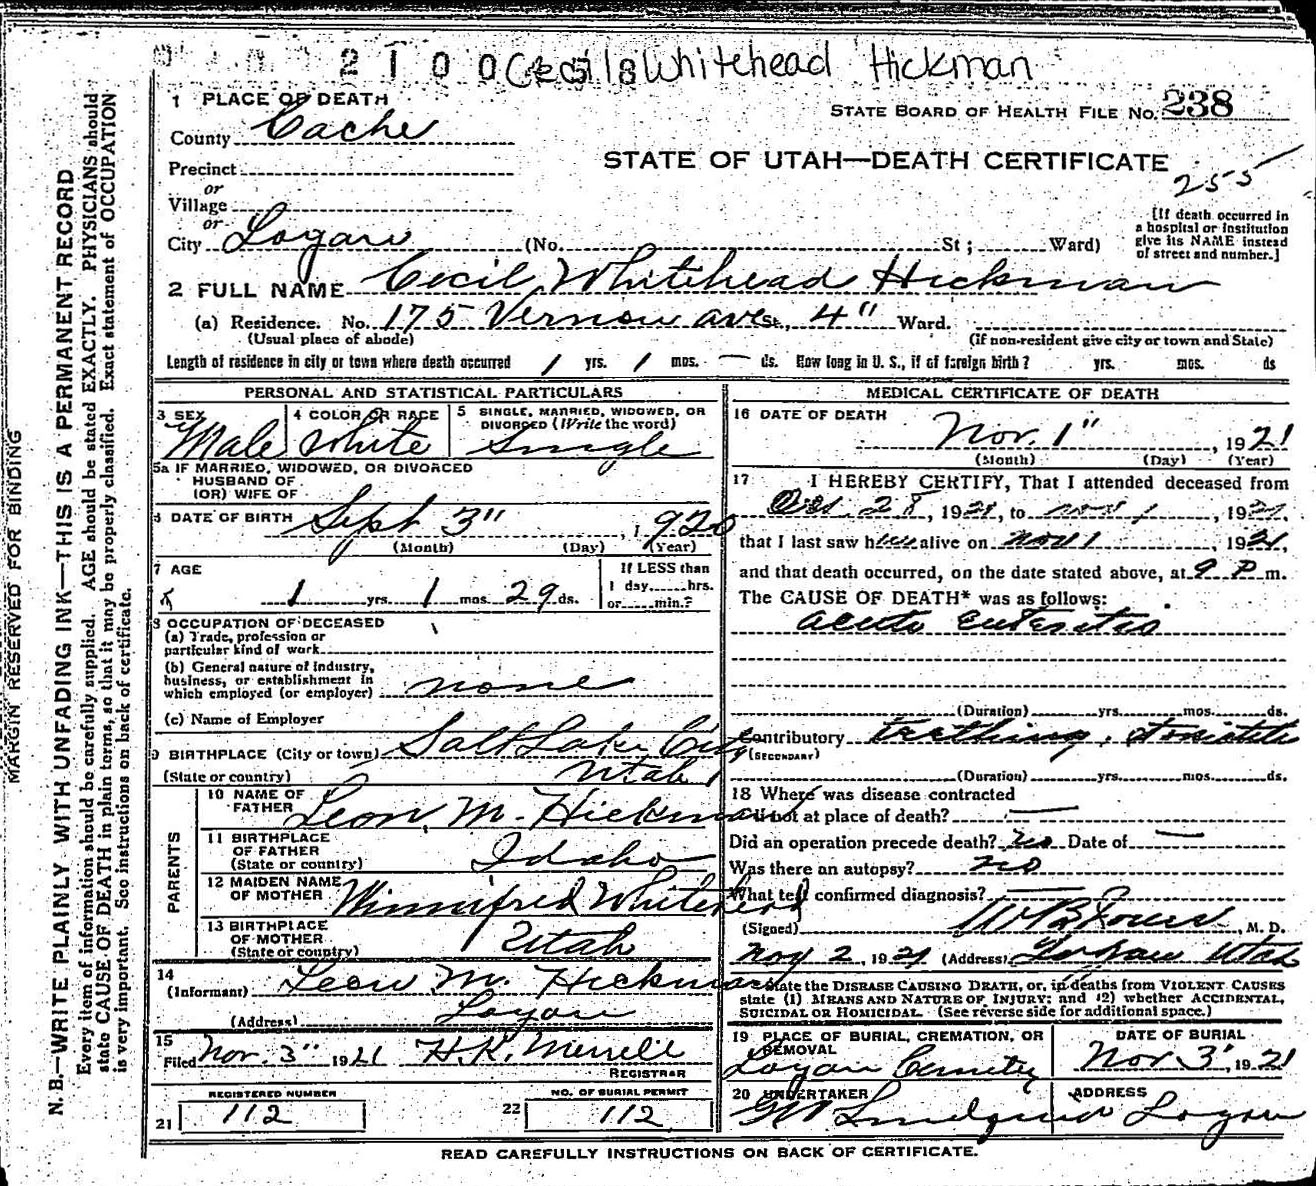 2100 Cecil Whitehead Hickman
1 PLACE OF DEATH
STATE BOARD OF HEALTH FILE No. 238
County Cache
STATE OF UTAH—DEATH CERTIFICATE
Precinct
255
or
Village
or
City Logan (No. St; Ward)
[If death occurred in
a hospital or institution
give its NAME instead
of street and number.]
2 FULL NAME Cecil Whitehead Hickman
(a) Residence. No. 175 Vernon ave St., 4" Ward.
(Usual place of abode) (If non-resident give city or town and State)
Length of residence in city or town where death occurred 1 yrs. 1 mos. — ds. How long in U. S., if of foreign birth? yrs. mos. ds
PERSONAL AND STATISTICAL PARTICULARS
3 SEX Male
4 COLOR OR RACE White
5 SINGLE, MARRIED, WIDOWED, OR
DIVORCED (Write the word)
Single
5a IF MARRIED, WIDOWED, OR DIVORCED
HUSBAND OF
(OR) WIFE OF
6 DATE OF BIRTH Sept 3" , 1920
(Month) (Day) (Year)
7 AGE
1 yrs. 1 mos. 29 ds.
If LESS than
1 day, hrs.
or min.?
8 OCCUPATION OF DECEASED
(a) Trade, profession or
particular kind of work
(b) General nature of industry,
business, or establishment in
which employed (or employer) none
(c) Name of Employer
9 BIRTHPLACE (City or town) Salt Lake City
(State or country) Utah
PARENTS
10 NAME OF
FATHER Leon M. Hickman
11 BIRTHPLACE
OF FATHER
(State or country) Idaho
12 MAIDEN NAME
OF MOTHER Winnifred Whitehead
13 BIRTHPLACE
OF MOTHER
(State or country) Utah
14
(Informant) Leon M. Hickman
(Address) Logan
15
Filed Nov. 3" 1921 H.K. Merrill
REGISTRAR
REGISTERED NUMBER
21 112
NO. OF BURIAL PERMIT
22 112
MEDICAL CERTIFICATE OF DEATH
16 DATE OF DEATH
Nov. 1" , 1921
(Month) (Day) (Year)
17 I HEREBY CERTIFY, That I attended deceased from
Oct. 28, 1921, to Nov 1, 1921,
that I last saw him alive on Nov 1, 1921,
and that death occurred, on the date stated above, at 9 P m.
The CAUSE OF DEATH* was as follows:
acute enteritis
(Duration) yrs. mos. ds.
Contributory teething,
(SECONDARY)
(Duration) yrs. mos. ds.
18 Where was disease contracted
if not at place of death? —
Did an operation precede death? no Date of —
Was there an autopsy? no
What test confirmed diagnosis? —
(Signed) , M. D.
Nov 2, 1921 (Address) Logan Utah
*State the DISEASE CAUSING DEATH, or, in deaths from VIOLENT CAUSES
state (1) MEANS AND NATURE OF INJURY; and (2) whether ACCIDENTAL,
SUICIDAL OR HOMICIDAL. (See reverse side for additional space.)
19 PLACE OF BURIAL, CREMATION, OR
REMOVAL
Logan Cemetery
DATE OF BURIAL
Nov 3", 1921
20 UNDERTAKER
ADDRESS
Logan
READ CAREFULLY INSTRUCTIONS ON BACK OF CERTIFICATE.
MARGIN RESERVED FOR BINDING
N. B.—WRITE PLAINLY WITH UNFADING INK—THIS IS A PERMANENT RECORD
Every item of information should be carefully supplied. AGE should be stated EXACTLY. PHYSICIANS should
state CAUSE OF DEATH in plain terms, so that it may be properly classified. Exact statement of OCCUPATION
is very important. See instructions on back of certificate.